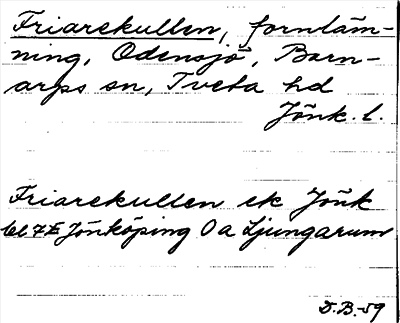 Friarekullen, fornläm-
ning, Odensjö, Barn-
arps sn, Tveta hd
Jönk. l.
Friarekullen ek Jönk
bl 7 E Jönköping O a Ljungarum
D.B.-59